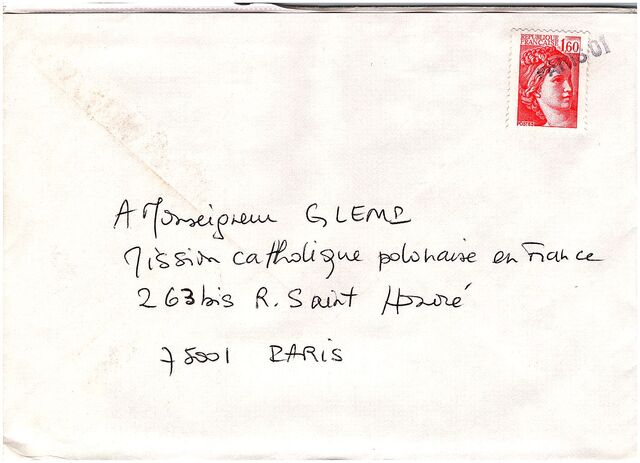 REPUBLIQUE
FRANCAISE 1,60
PARIS 01
POSTES
A Monseigneur GLEMP
Mission catholique polonaise en France
263bis R. Saint Honoré
75001 PARIS